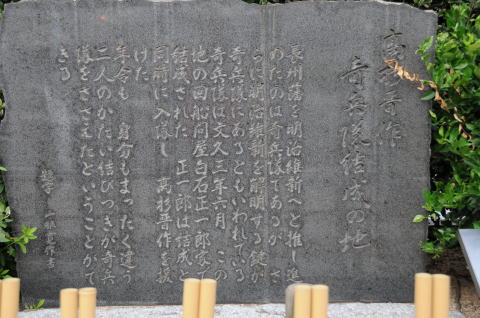 高杉晋作
奇兵隊結成の地
長州藩を明治維新へと推し進
めたのは奇兵隊であるが さ
らに明治維新を解明する鍵が
奇兵隊にあるともいわれている
奇兵隊は文久三年六月 この
地の回船問屋白石正一郎家で
結成された 正一郎は結成と
同時に入隊し 高杉晋作を援
けた
年令も 身分もまったく違う
二人のかたい結びつきが奇兵
隊をささえたということがで
きる